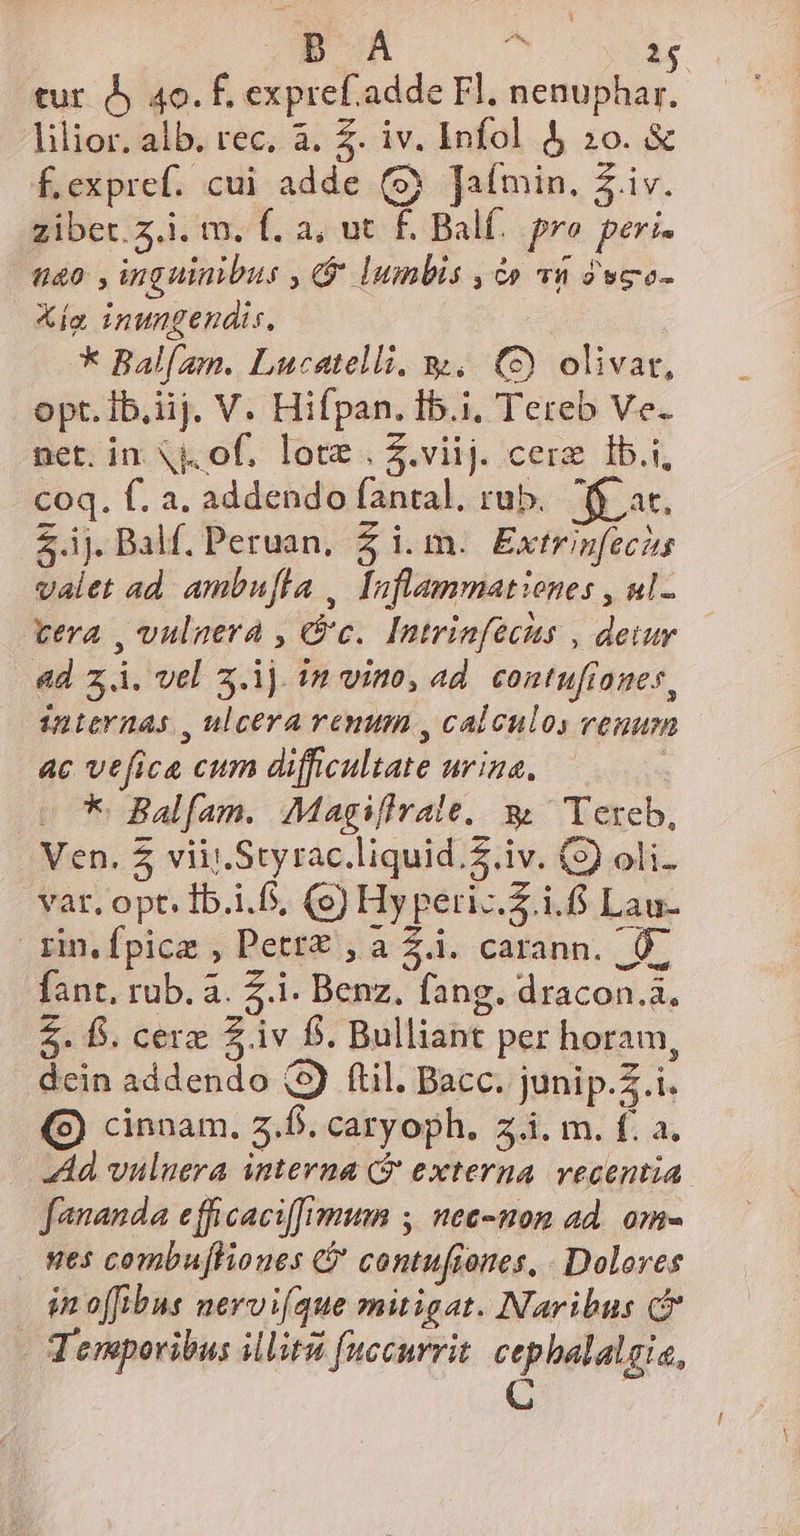 B A 25
tur & 40. ſ. expreſ. adde Fl. nenuphar.
lilior. alb. rec. ā. ℥. iv. Inſol & 20. &
f. expreſ. cui adde Ⓞ Jaſmin. ℥.iv.
zibet. ʒ.i. m. ſ. a, ut f. Balſ. pro peri-
næo, inguinibus, & lumbis, ἐν τῇ δυσο-
χίᾳ inungendis.
* Balſam. Lucatelli. ℞. Ⓞ olivar,
opt. ℔.iij. V. Hiſpan. ℔.i. Tereb Ve-
net. in of. lotæ. ℥.viij. ceræ ℔.i,
coq. ſ. a. addendo ſantal. rub. at.
℥.ij. Balſ. Peruan. ℥ i. m. Extrinſecùs
valet ad ambuſta, Inflammationes, ul-
cera, vulnera, &c. Intrinſecùs, detur
ad ʒ.i. vel ʒ.ij. in vino, ad contuſiones,
internas, ulcera renum, calculos renum
ac veſicæ cum difficultate urinæ.
* Balſam. Magiſtrale. ℞ Tereb.
Ven. ℥ viij. Styrac. liquid. ℥.iv. Ⓞ oli-
var. opt. ℔.i.ß. Ⓞ Hyperic. ℥.i.ß Lau-
rin. ſpicæ, Petræ, a ℥.i. carann.
ſant. rub. ā. ℥.i. Benz. ſang. dracon. ā.
℥. ß. ceræ ℥.iv ß. Bulliant per horam,
dein addendo Ⓞ ſtil. Bacc. junip. ℥.i.
Ⓞ cinnam. ʒ.ß. caryoph. ʒ.i. m. ſ. a.
Ad vulnera interna & externa recentia
ſananda efficaciſſimum; nec-non ad om-
nes combuſtiones & contuſiones. Dolores
in oſſibus nerviſque mitigat. Naribus &
Temporibus illitū ſuccurrit cephalalgiæ,
C